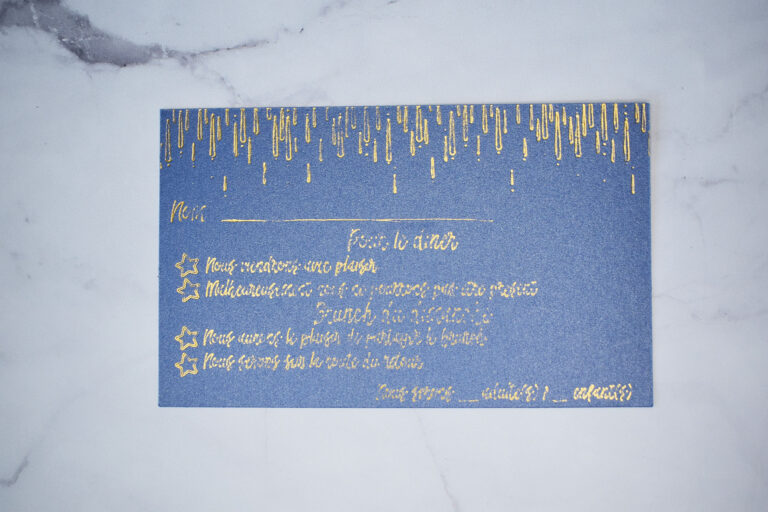 Nom
Pour le diner
Nous viendrons avec plaisir
Malheureusement nous ne pourrons pas être présent
Brunch du dimanche
Nous aurons le plaisir de partager le brunch
Nous serons sur le route du retour
Nous serons __ adulte(s) & __ enfant(s)